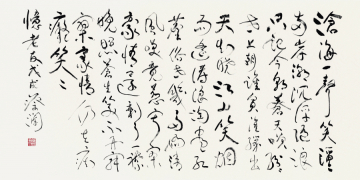 滄海一聲笑滔
兩岸潮浮沉隨浪
只記今朝蒼天笑紛
世上潮誰負誰勝出
天知曉江山笑煙
雨遙濤浪淘盡紅
塵俗世幾多嬌清
風笑竟惹寂寥
豪情還剩了一襟
晚照蒼生笑不再寂
寥豪情仍在癡
癡笑々
憶老友